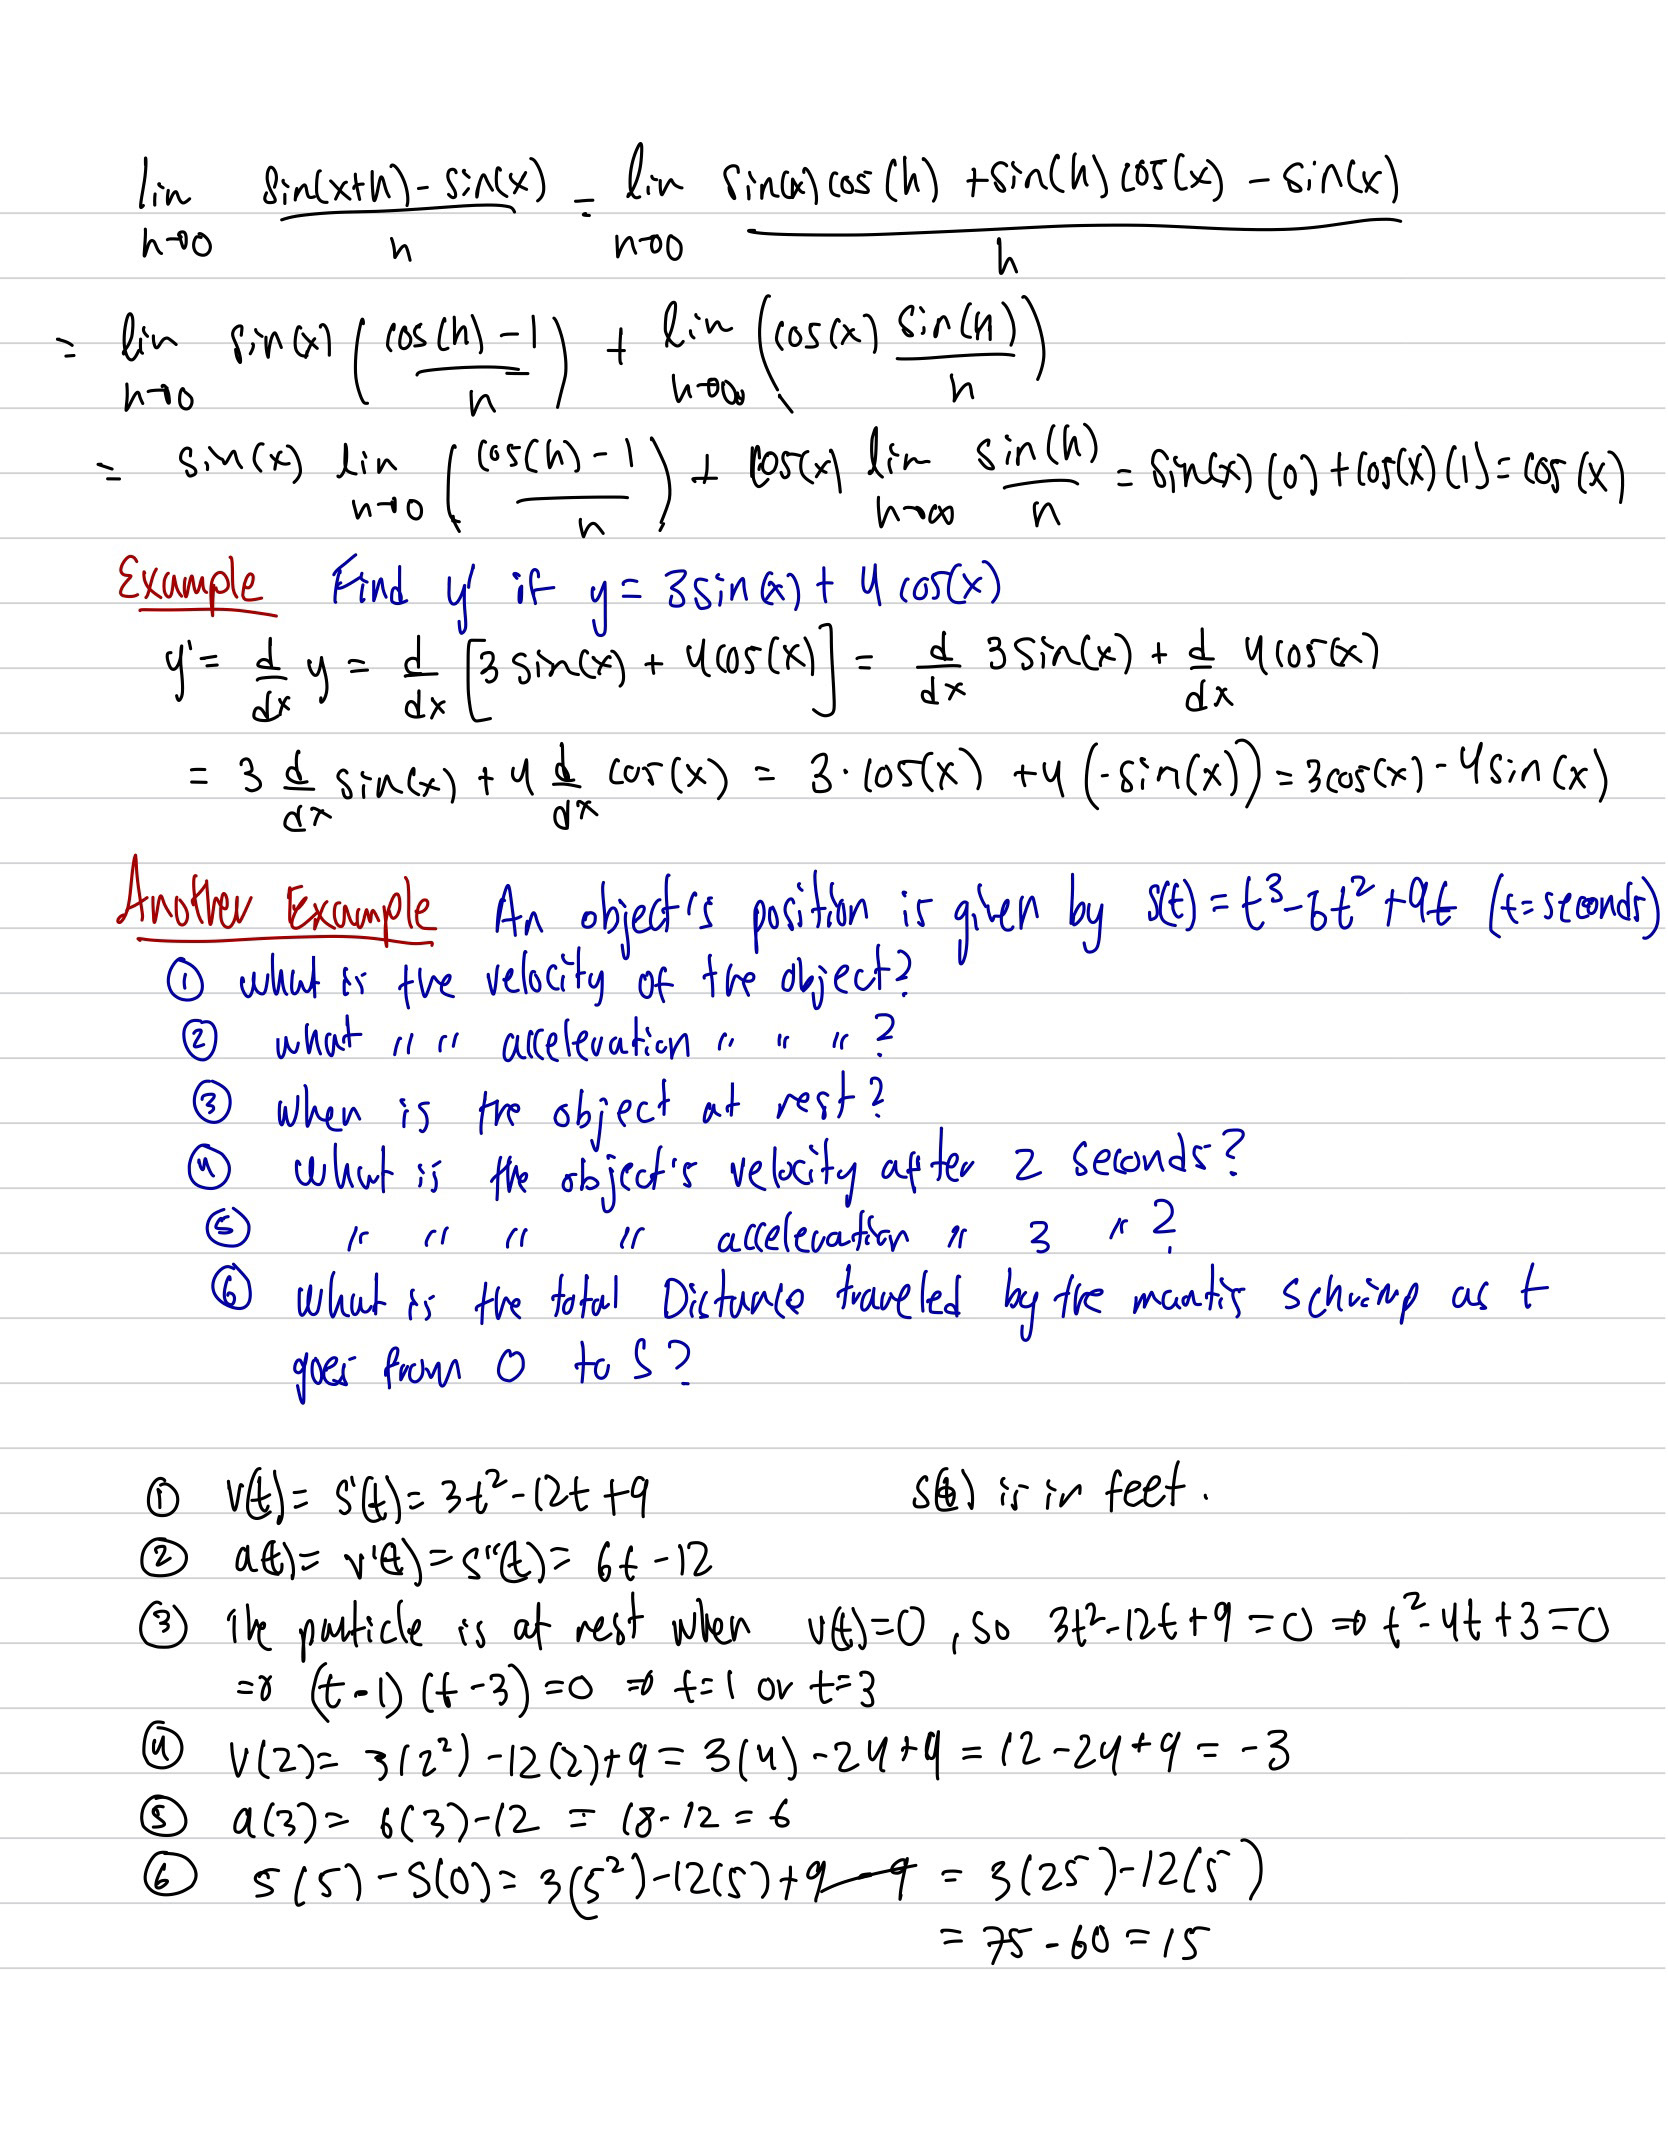 lim sin(x+h) - sin(x) / h = lim sin(x) cos(h) + sin(h) cos(x) - sin(x) / h
h→0 h→0
= lim sin(x) ( cos(h) - 1 / h ) + lim ( cos(x) sin(h) / h )
h→0 h→∞
= sin(x) lim ( cos(h) - 1 / h ) + cos(x) lim sin(h) / h = sin(x) (0) + cos(x) (1) = cos(x)
h→0 h→∞
Example Find y' if y = 3 sin(x) + 4 cos(x)
y' = d/dx y = d/dx [3 sin(x) + 4 cos(x)] = d/dx 3 sin(x) + d/dx 4 cos(x)
= 3 d/dx sin(x) + 4 d/dx cos(x) = 3 · cos(x) + 4 (-sin(x)) = 3 cos(x) - 4 sin(x)
Another Example An object's position is given by s(t) = t³ - 6t² + 9t (t = seconds)
① what is the velocity of the object?
② what " " acceleration " " " ?
③ when is the object at rest?
④ what is the object's velocity after 2 seconds?
⑤ " " " " acceleration " 3 " ?
⑥ what is the total Distance traveled by the mantis schrimp as t
goes from 0 to 5?
① v(t) = s'(t) = 3t² - 12t + 9 s(t) is in feet.
② a(t) = v'(t) = s''(t) = 6t - 12
③ The particle is at rest when v(t) = 0, so 3t² - 12t + 9 = 0 ⇒ t² - 4t + 3 = 0
⇒ (t - 1) (t - 3) = 0 ⇒ t = 1 or t = 3
④ v(2) = 3(2²) - 12(2) + 9 = 3(4) - 24 + 9 = 12 - 24 + 9 = -3
⑤ a(3) = 6(3) - 12 = 18 - 12 = 6
⑥ s(5) - s(0) = 3(5²) - 12(5) + 9 - 9 = 3(25) - 12(5)
= 75 - 60 = 15